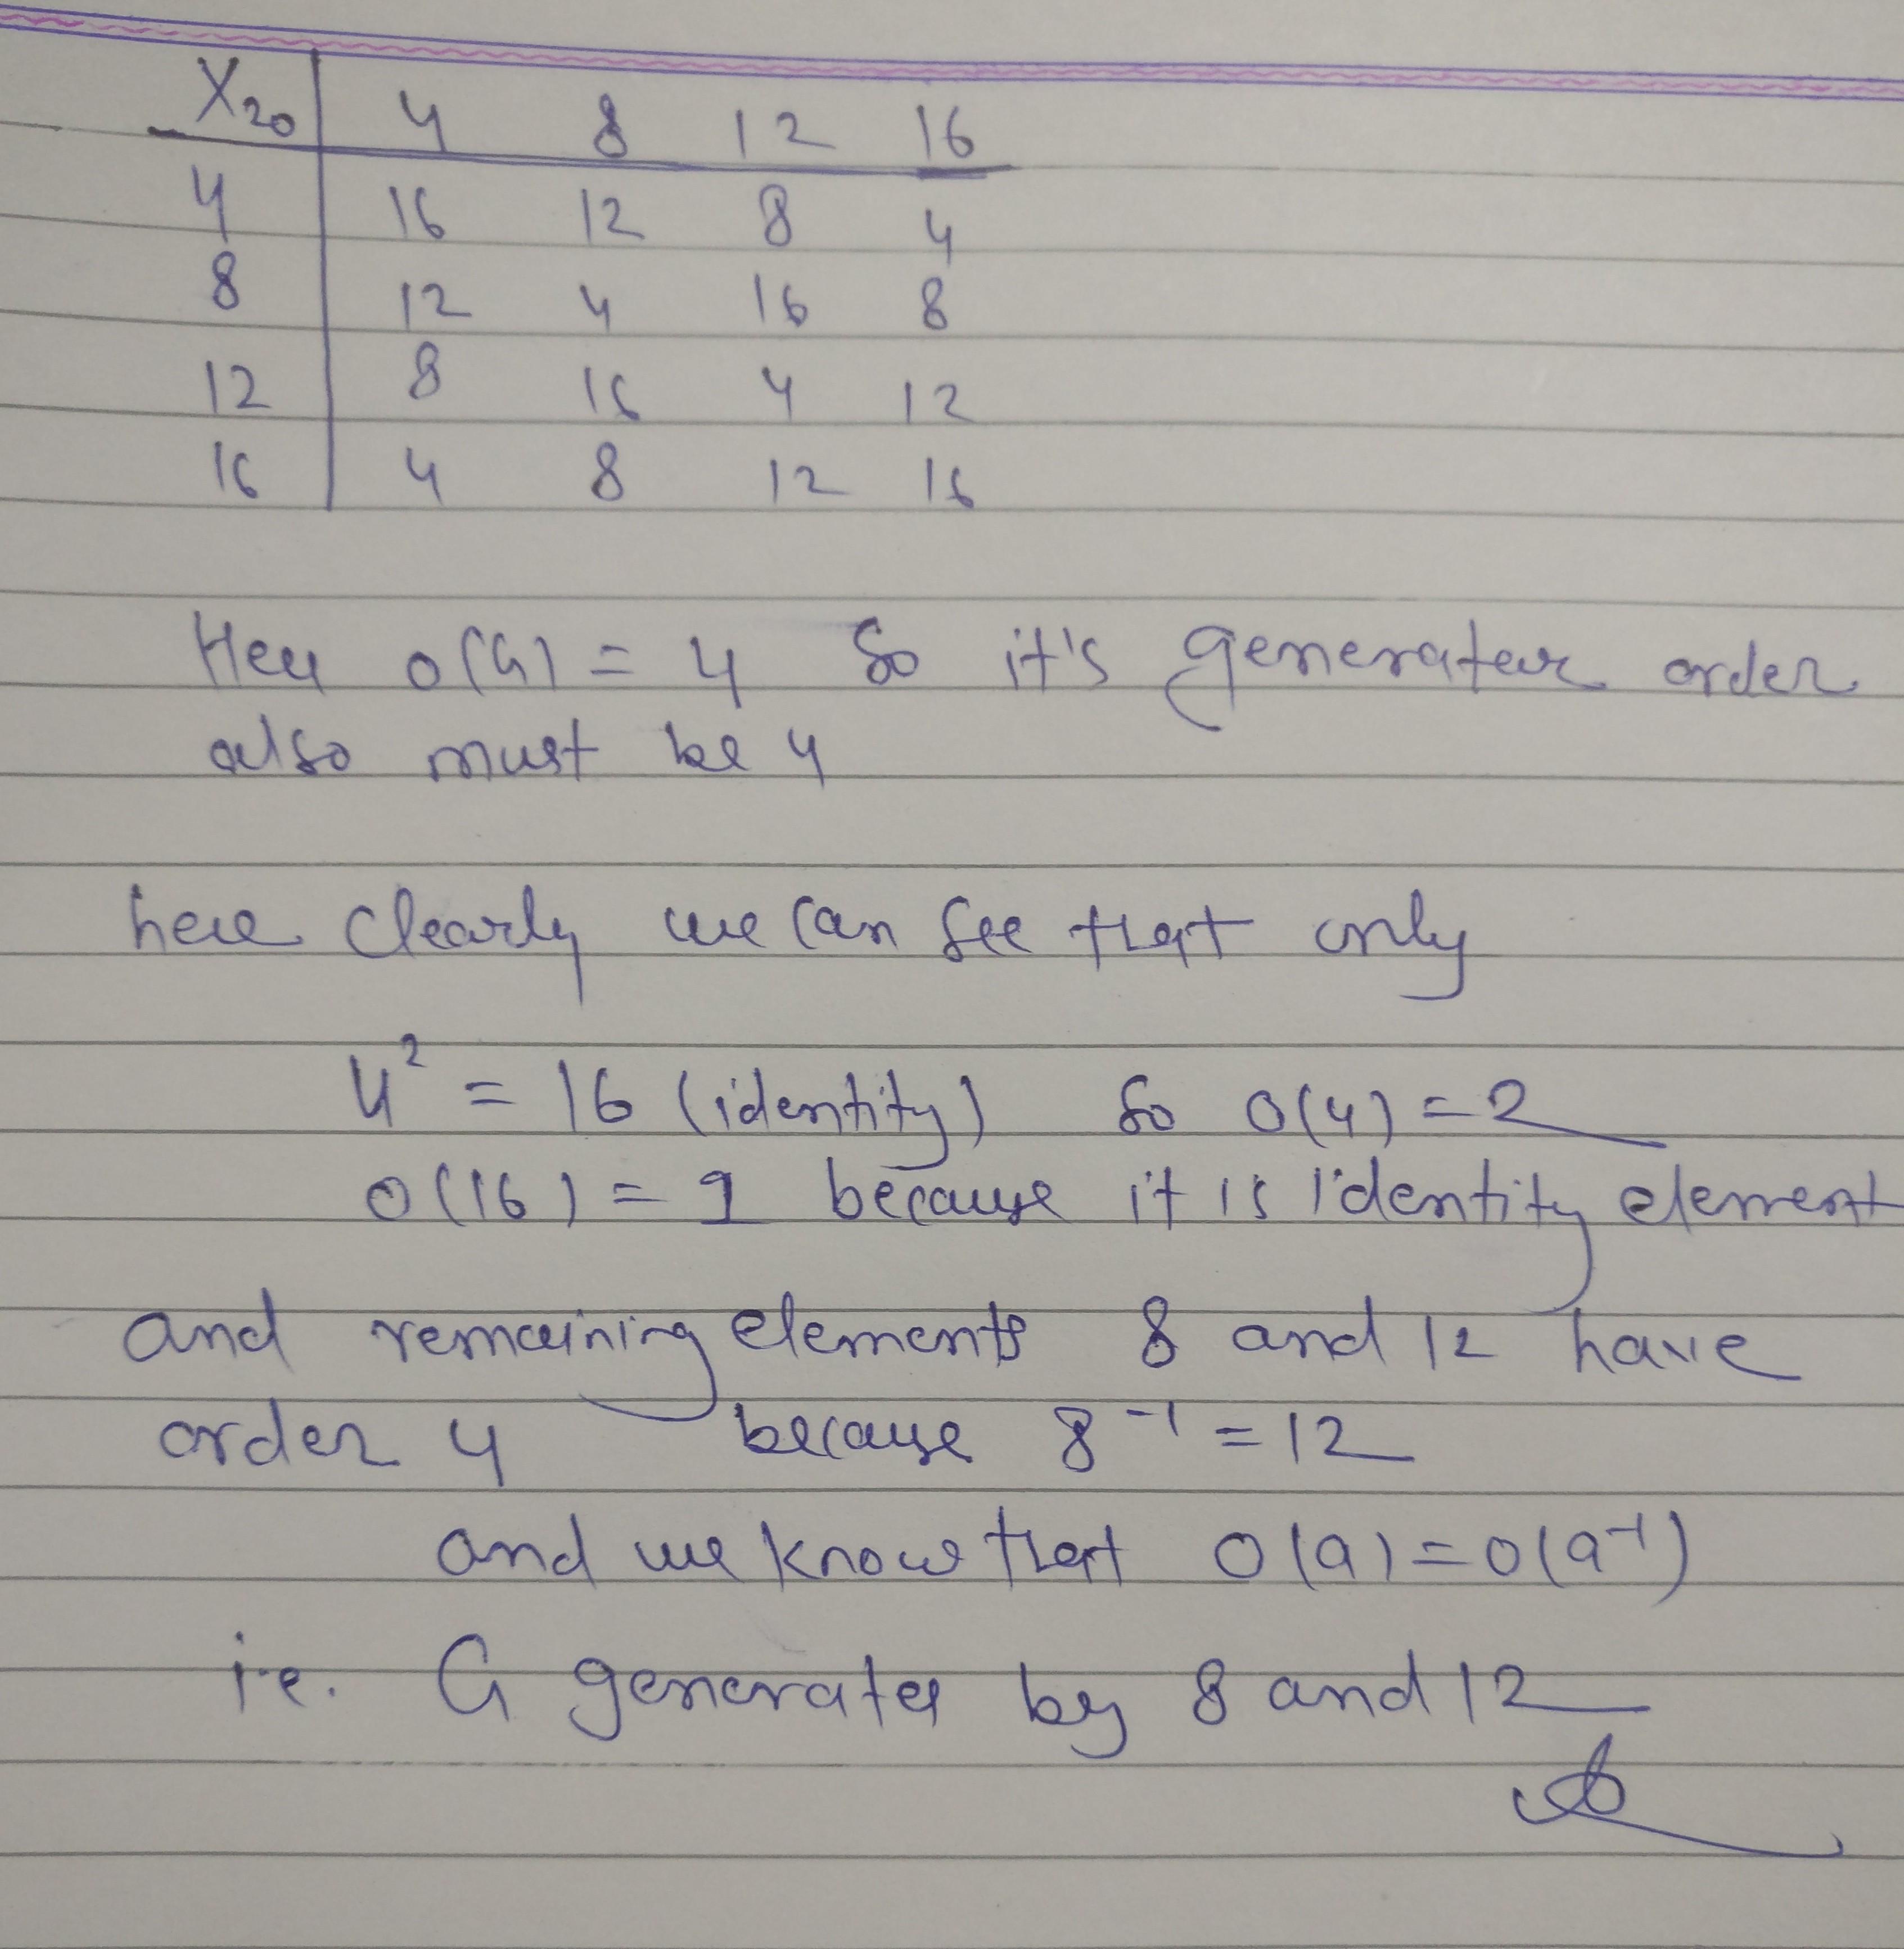 X₂₀ 4 8 12 16
4 16 12 8 4
8 12 4 16 8
12 8 16 4 12
16 4 8 12 16
Here o(G) = 4 So it's generater order
also must be 4
here clearly we can see that only
4² = 16 (identity) So o(4) = 2
o(16) = 1 because it is identity element
and remaining elements 8 and 12 have
order 4 because 8⁻¹ = 12
and we know that o(a) = o(a⁻¹)
i.e. G generates by 8 and 12